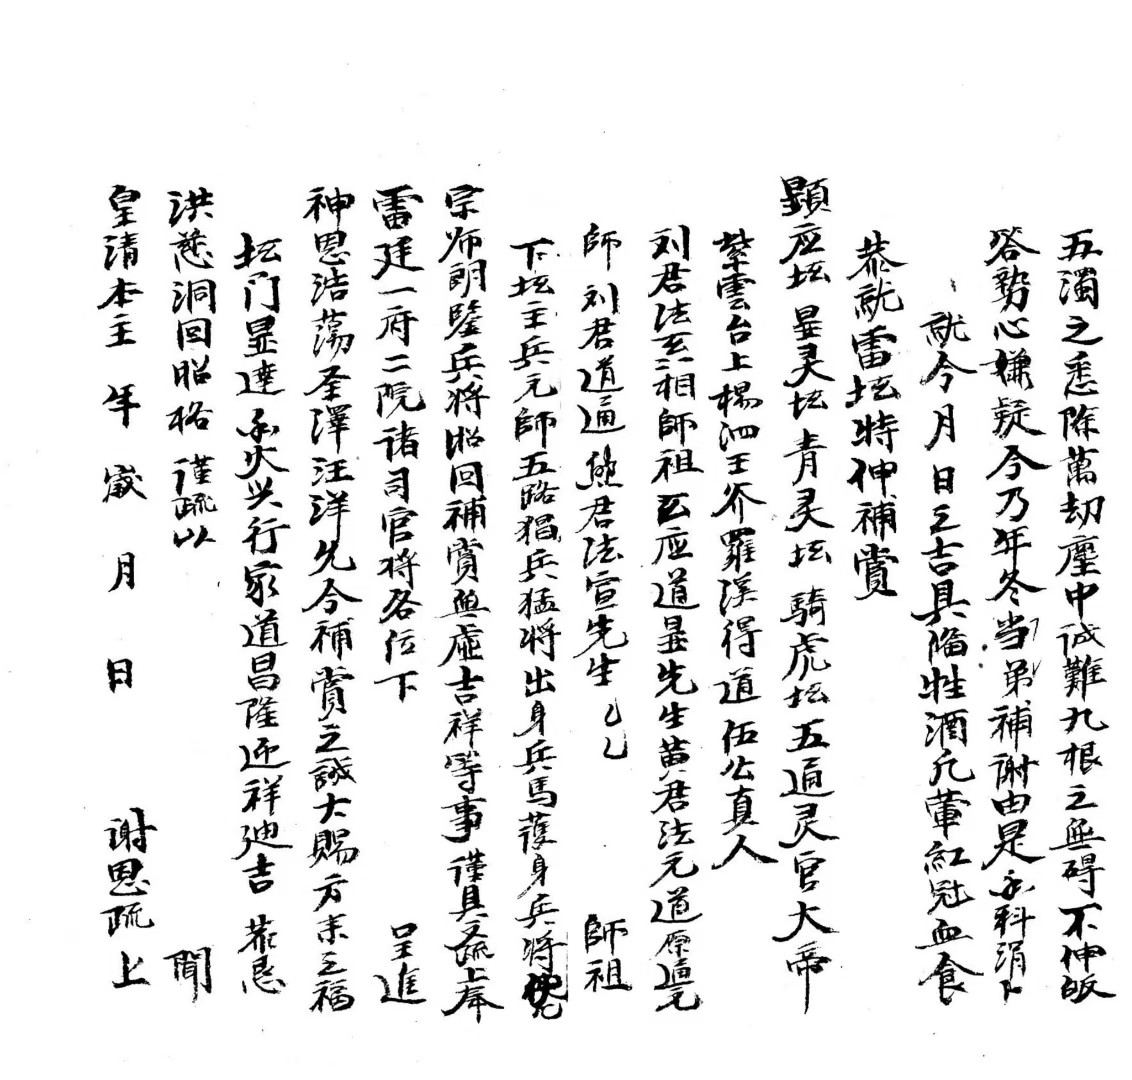 五濁之悉除萬劫塵中诚難九根之無碍不伸皈
答势心嫌疑今乃年冬当弟補谢由是禾科涓卜
就今月日之吉具陷牲酒凡葷紅冠血食
恭就雷坛特伸補賞
顕应坛 显灵坛 青灵坛 騎虎坛 五通灵官大帝
紫雲台上楊泗王爷羅溪得道伍公真人
刘君法玄相師祖玄应道显先生黄君法元道原通元
師刘君道通熊君法宣先生 師祖
下坛主兵元師五路猖兵猛将出身兵馬護身兵将
宗师朗鑒兵将昭回補賞無虚吉祥等事谨具文疏上奉
雷廷一府二院诸司官将各位下 呈進
神恩浩蕩圣澤汪洋允今補賞之誠大賜方来之福
坛门显達香火兴行家道昌隆迎祥迪吉 恭恳
洪慈洞回昭格 谨疏以 聞
皇清本主 年 歲 月 日 谢恩疏上